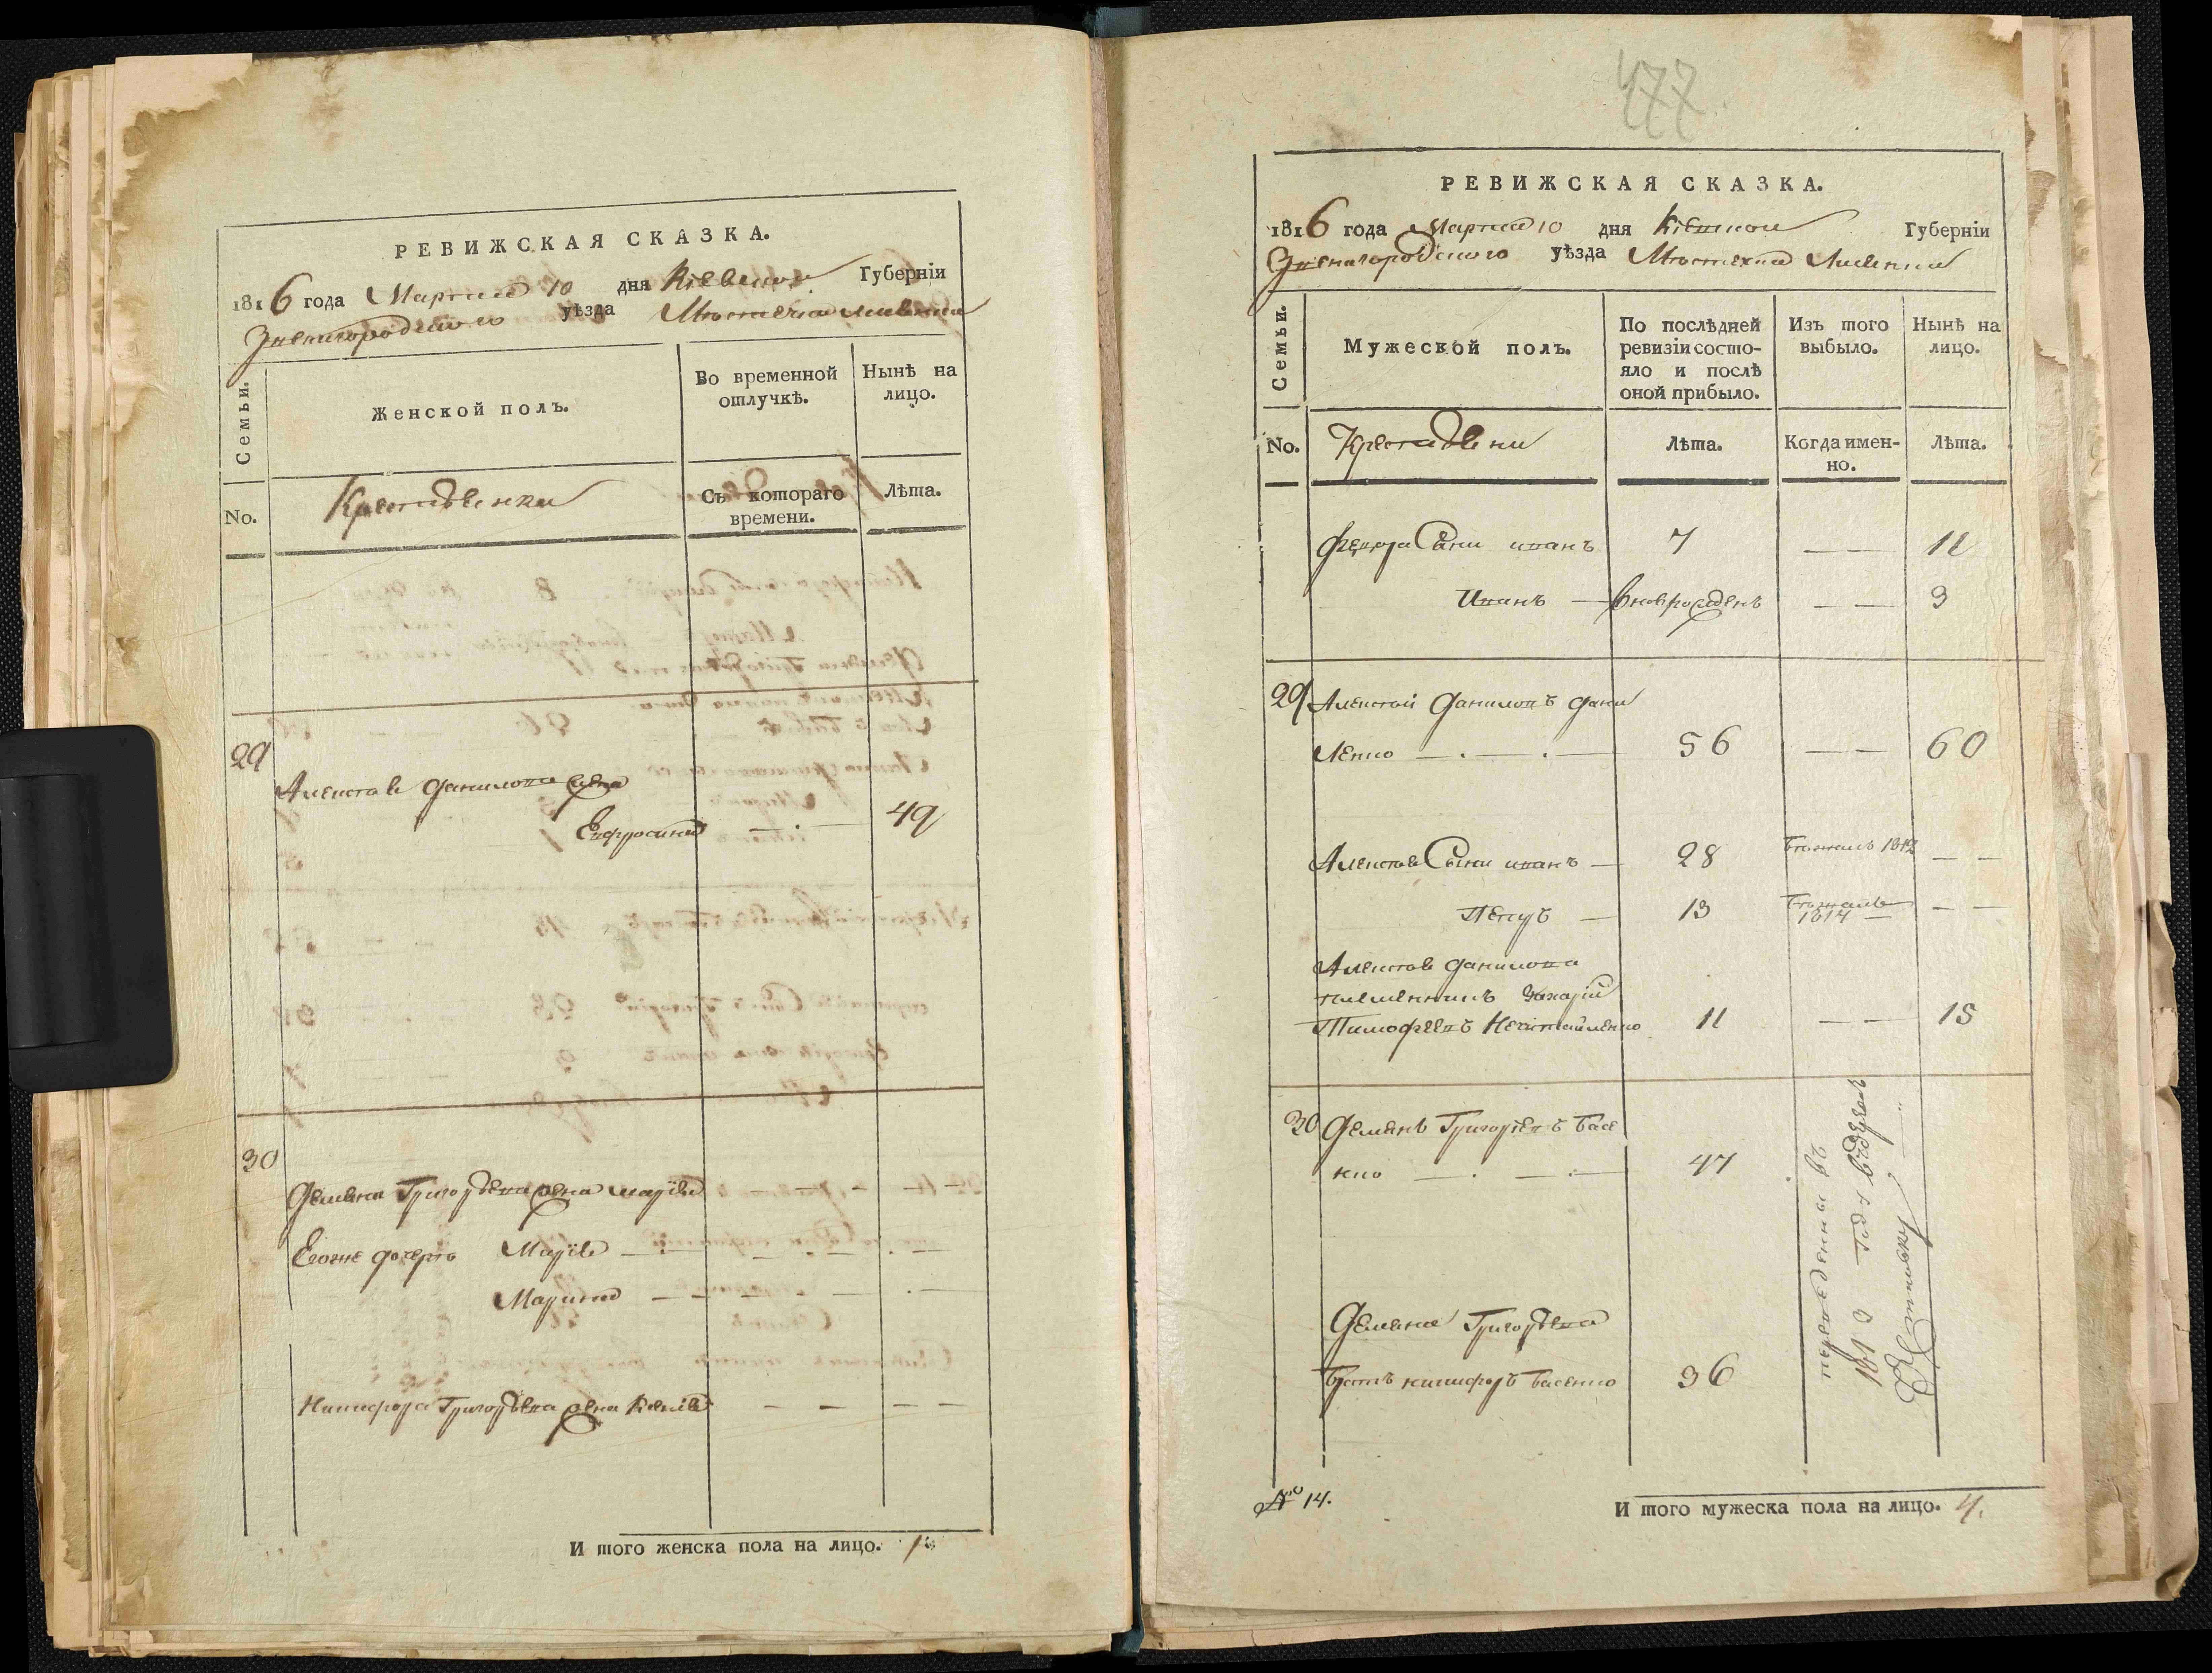 РЕВИЖСКАЯ СКАЗКА.
1816 года Марта 10 дня Кіевской Губерніи
Звенигородского уѣзда Мѣстечка Лисенки
Семьи. Женской полъ. Во временной отлучкѣ. Нынѣ на лицо.
No. Крестьянки Съ котораго времени. Лѣта.
29
Алексѣя Данилова жена
Евфросинія — · — 49
30
Демяна Григорьева жена Марія
Егоже дочерь Марія — · — · —
Марина — — — — · —
Никифора Григорьева жена Ксенія — — — —
И того женска пола на лицо. 1
477
РЕВИЖСКАЯ СКАЗКА.
1816 года Марта 10 дня Кіевской Губерніи
Звенигородского уѣзда Мѣстечка Лисенки
Семьи. Мужеской полъ. По послѣдней ревизіи состояло и послѣ оной прибыло. Изъ того выбыло. Нынѣ на лицо.
No. Крестьяни Лѣта. Когда именно. Лѣта.
Федора Сыни иванъ 7 — — 11
Иванъ — вновьрожденъ — — 3
29 Алексѣй Даниловъ Дани
ленко — · — · — 56 — — 60
Алексѣя Сыни иванъ — 28 бѣжалъ 1812 — —
Петръ — 13 бѣжалъ 1814 — — —
Алексѣя Данилова
племенникъ Захарій
Тимофеевъ Нечитайленко 11 — — 15
30 Демянъ Григорьевъ Басе
нко — · — · — 47
Демяна Григорьева
братъ никифоръ Басенко 36
переведенны въ
1813 годѣ въ деревню
No 14.
И того мужеска пола на лицо. 4.